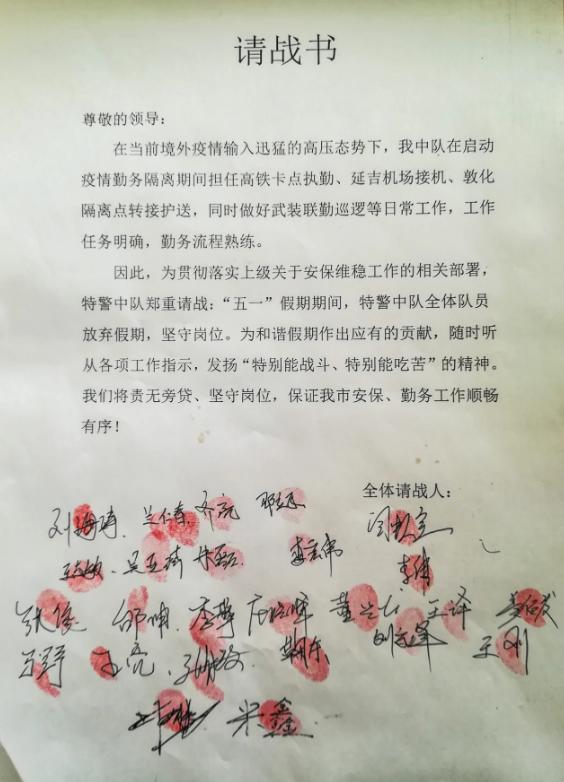 请战书
尊敬的领导:
在当前境外疫情输入迅猛的高压态势下，我中队在启动
疫情勤务隔离期间担任高铁卡点执勤、延吉机场接机、敦化
隔离点转接护送，同时做好武装联勤巡逻等日常工作，工作
任务明确，勤务流程熟练。
因此，为贯彻落实上级关于安保维稳工作的相关部署，
特警中队郑重请战：“五一”假期期间，特警中队全体队员
放弃假期，坚守岗位。为和谐假期作出应有的贡献，随时听
从各项工作指示，发扬“特别能战斗、特别能吃苦”的精神。
我们将责无旁贷、坚守岗位，保证我市安保、勤务工作顺畅
有序！
全体请战人：
刘海涛
李伟
张俊 邵帅 王译
王刚
米鑫